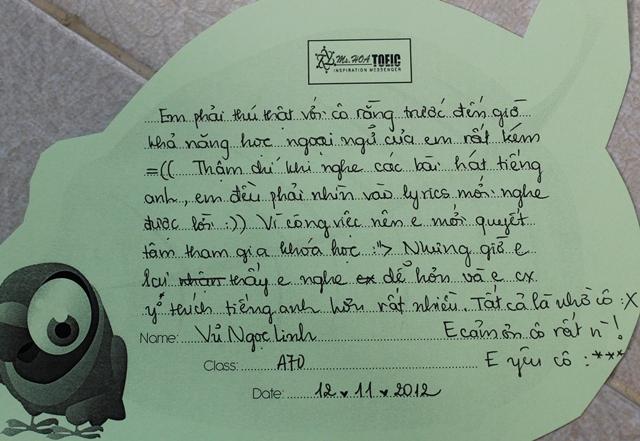 Ms. HOA TOEIC
INSPIRATION MESSENGER
Em phải thú thật với cô rằng trước đến giờ
khả năng học ngoại ngữ của em rất kém
=(( Thậm chí khi nghe các bài hát tiếng
anh, em đều phải nhìn vào lyrics mới nghe
được lời :)) Vì công việc nên e mới quyết
tâm tham gia khóa học :"> Nhưng giờ e
lại thấy e nghe dễ hơn và e cx
thích tiếng anh hơn rất nhiều. Tất cả là nhờ cô :X
Name: Vũ Ngọc Linh E cảm ơn cô rất n` !
Class: A70 E yêu cô :***
Date: 12 . 11 . 2012